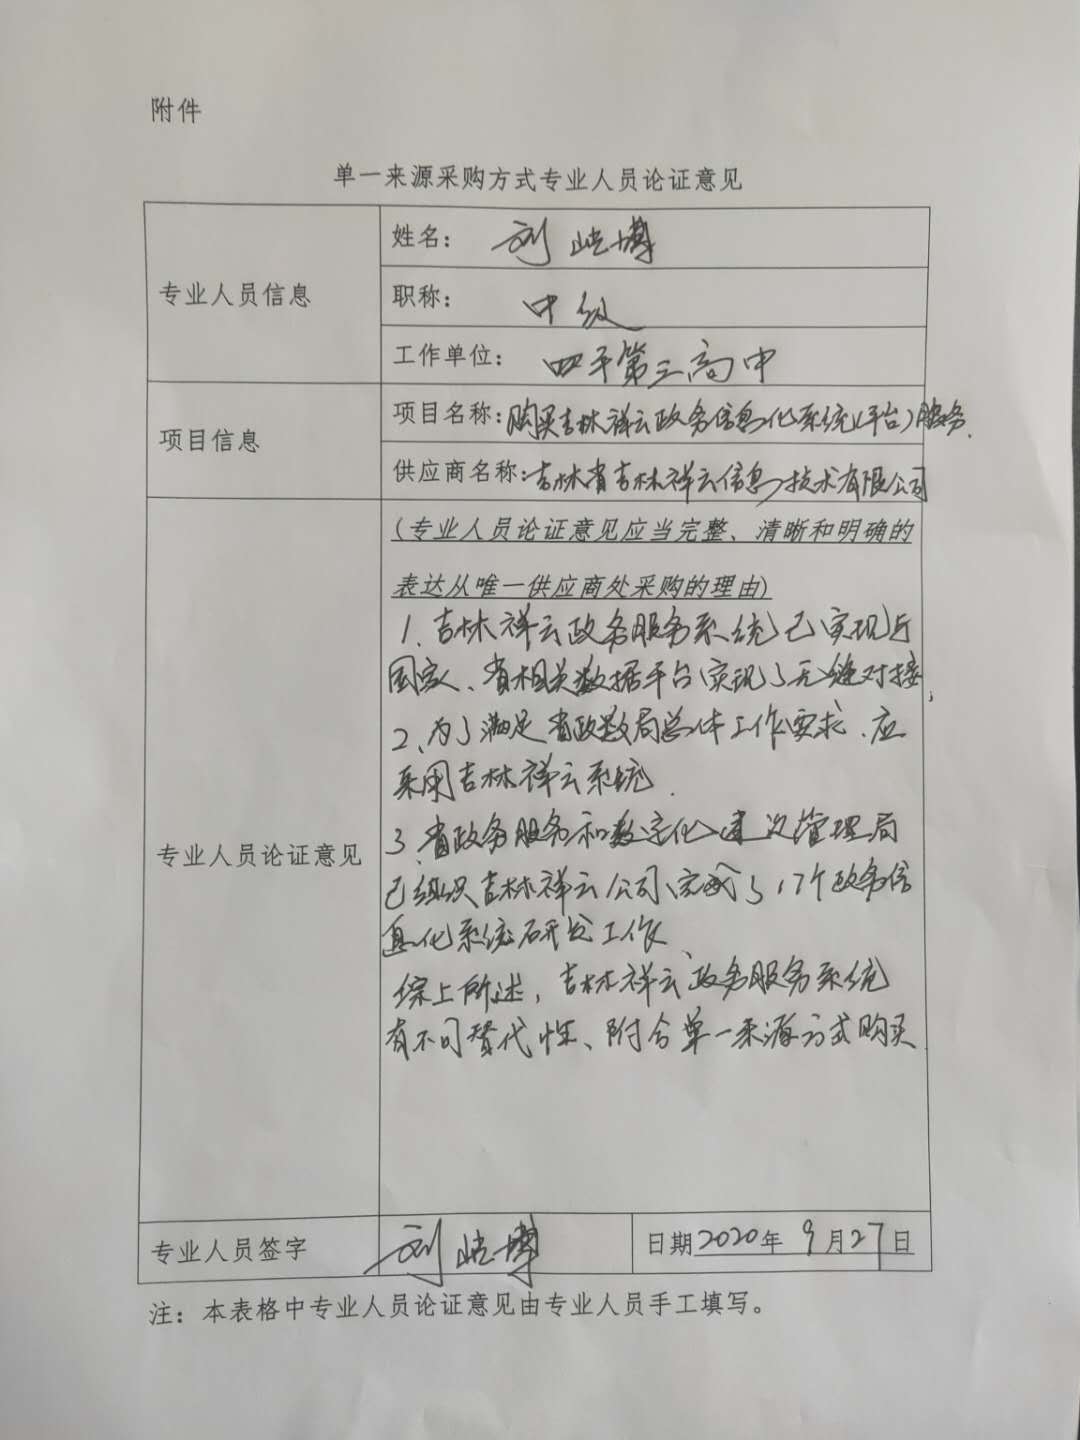 附件
单一来源采购方式专业人员论证意见
专业人员信息
姓名： 刘屹博
职称： 中级
工作单位： 四平第三高中
项目信息
项目名称：购买吉林祥云政务信息化系统(平台)服务.
供应商名称：吉林省吉林祥云信息技术有限公司
专业人员论证意见
(专业人员论证意见应当完整、清晰和明确的
表达从唯一供应商处采购的理由)
1、吉林祥云政务服务系统已实现与
国家、省相关数据平台实现了无缝对接，
2、为了满足省政数局总体工作要求、应
采用吉林祥云系统.
3、省政务服务和数字化建设管理局
已组织吉林祥云公司完成了17个政务信
息化系统研发工作、
综上所述，吉林祥云政务服务系统
有不可替代性、附合单一来源方式购买.
专业人员签字
刘屹博
日期2020年 9月27日
注：本表格中专业人员论证意见由专业人员手工填写。